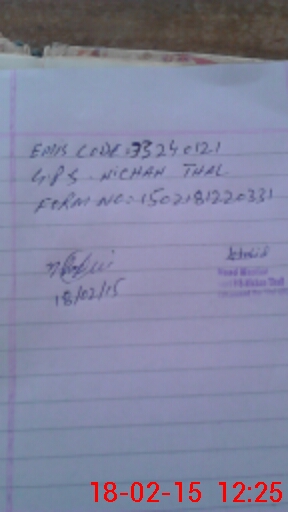 EMIS CODE: 33240121
G.P.S. NICHAN THAL
FORM NO: 1502181220331
18/02/15
Head Master
18-02-15 12:25